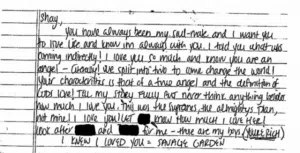 Shay,
You have always been my soul-mate and I want you
to live life and know I'm always with you. I told you what was
coming indirectly! I love you so much and know you are
an angel = Literally! We split into two to come change the world!
Your characteristics is that of a true angel and the definition of
God's love! Tell my story fully but never think anything besides
how much I love you. This was the supremes, the almighty's plan,
not mine! I love you! Let know how much I love her!
Look after and for me - those are my boys (You're Rich)
I KNEW I LOVED YOU = SAVAGE GARDEN